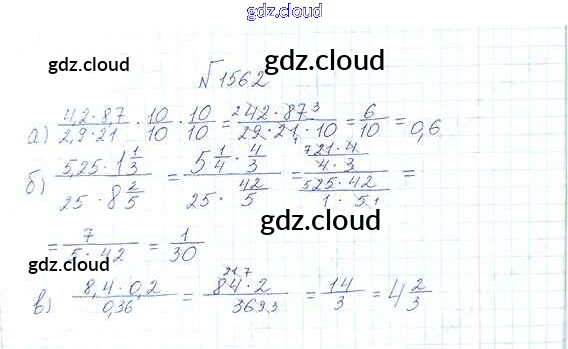 gdz.cloud
gdz.cloud
№1562
gdz.cloud
а) 4,2·8,7 / 2,9·21 · 10/10 · 10/10 = 42·87 / 29·21·10 = 6/10 = 0,6
б) 5,25·1 1/3 / 25·8 2/5 = 5 1/4 · 4/3 / 25 · 42/5 = 21·4 / 4·3 / 25·42 / 1·5 =
gdz.cloud
= 7 / 5·42 = 1/30
gdz.cloud
gdz.cloud
в) 8,4·0,2 / 0,36 = 84·2 / 36 = 14/3 = 4 2/3